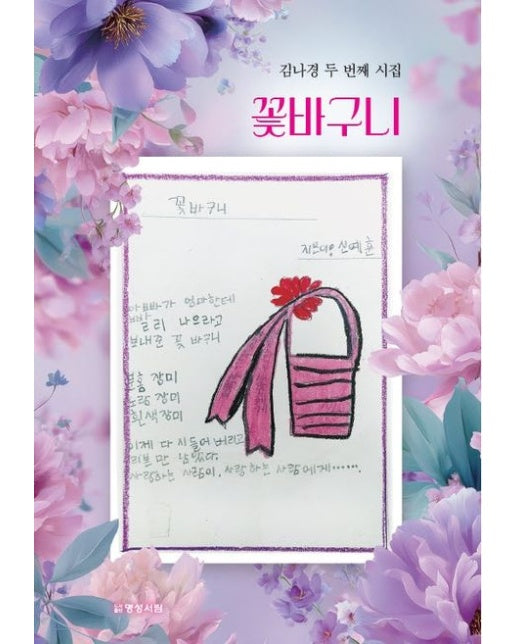 김나경 두 번째 시집
꽃바구니
꽃바구니
지은이 신예훈
아빠가 엄마한테
빨리 나으라고
보내준 꽃 바구니
분홍 장미
노랑 장미
흰색 장미
이제 다 시들어 버리고
리본 만 남았다.
사랑하는 사람이, 사랑하는 사람에게……
명성서림